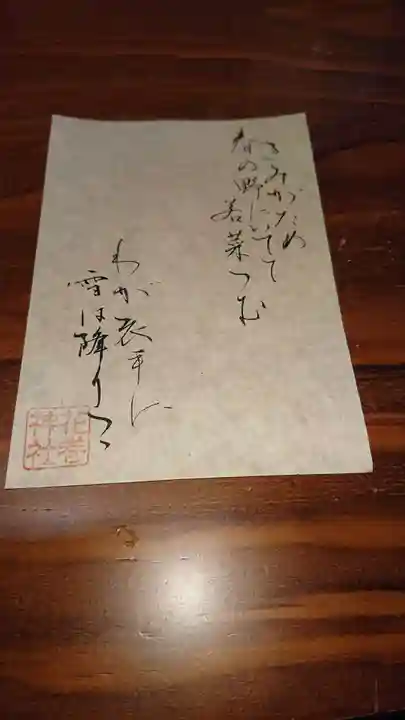 きみがため
春の野にいでて
若菜つむ
わが衣手に
雪は降りつつ
神社